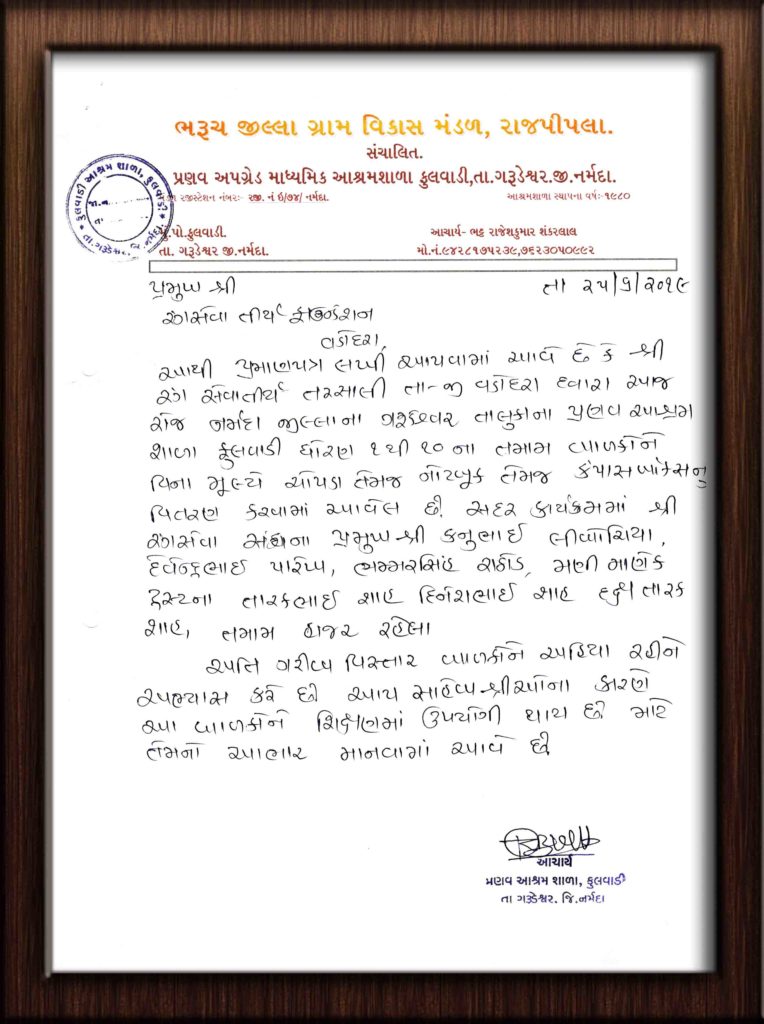 ભરૂચ જીલ્લા ગ્રામ વિકાસ મંડળ, રાજપીપલા.
સંચાલિત.
પ્રણવ અપગ્રેડ માધ્યમિક આશ્રમશાળા ફુલવાડી,તા.ગરૂડેશ્વર.જી.નર્મદા.
રજીસ્ટ્રેશન નંબર:- રજી. નં ઇ/૭૪/ નર્મદા. આશ્રમશાળા સ્થાપના વર્ષ:- ૧૯૮૦
મું.પો.ફુલવાડી. આચાર્ય- ભટ્ટ રાજેશકુમાર શંકરલાલ
તા. ગરૂડેશ્વર જી.નર્મદા. મો.નં.૯૪૨૮૧૭૫૨૩૯,૭૬૨૩૦૫૦૯૯૨
ફુલવાડી આશ્રમ શાળા, ફુલવાડી
જા.ન.
તા.
તા.ગરૂડેશ્વર, જિ.નર્મદા
પ્રમુખ શ્રી તા ૨૫/૬/૨૦૧૯
રંગસેવા તીર્થ ફાઉન્ડેશન
વડોદરા,
આથી પ્રમાણપત્ર લખી આપવામાં આવે છે કે શ્રી
રંગ સેવાતીર્થ તરસાલી તા-જી વડોદરા દ્વારા આજ
રોજ નર્મદા જીલ્લાના ગરૂડેશ્વર તાલુકાના પ્રણવ આશ્રમ
શાળા ફુલવાડી ધોરણ ૧ થી ૧૦ ના તમામ બાળકોને
વિના મૂલ્યે ચોપડા તેમજ નોટબુક તેમજ કંપાસબોક્સનુ
વિતરણ કરવામાં આવેલ છે. સદર કાર્યક્રમમાં શ્રી
રંગસેવા સંઘના પ્રમુખ શ્રી કનુભાઈ લીંબાચિયા,
દેવેન્દ્રભાઈ પારેખ, ભમ્મરસિંહ રાઠોડ, મણી માણેક
ટ્રસ્ટના તારકભાઈ શાહ દિનેશભાઈ શાહ દક્ષ તારક
શાહ, તમામ હાજર રહેલા
અતિ ગરીબ વિસ્તાર બાળકોને અહિયા રહીને
અભ્યાસ કરે છે. આપ સાહેબશ્રીઓના કારણે
આ બાળકોને શિક્ષણમાં ઉપયોગી થાય છે. માટે
તેમનો આભાર માનવામાં આવે છે.
આચાર્ય
પ્રણવ આશ્રમ શાળા, ફુલવાડી
તા ગરૂડેશ્વર. જિ.નર્મદા